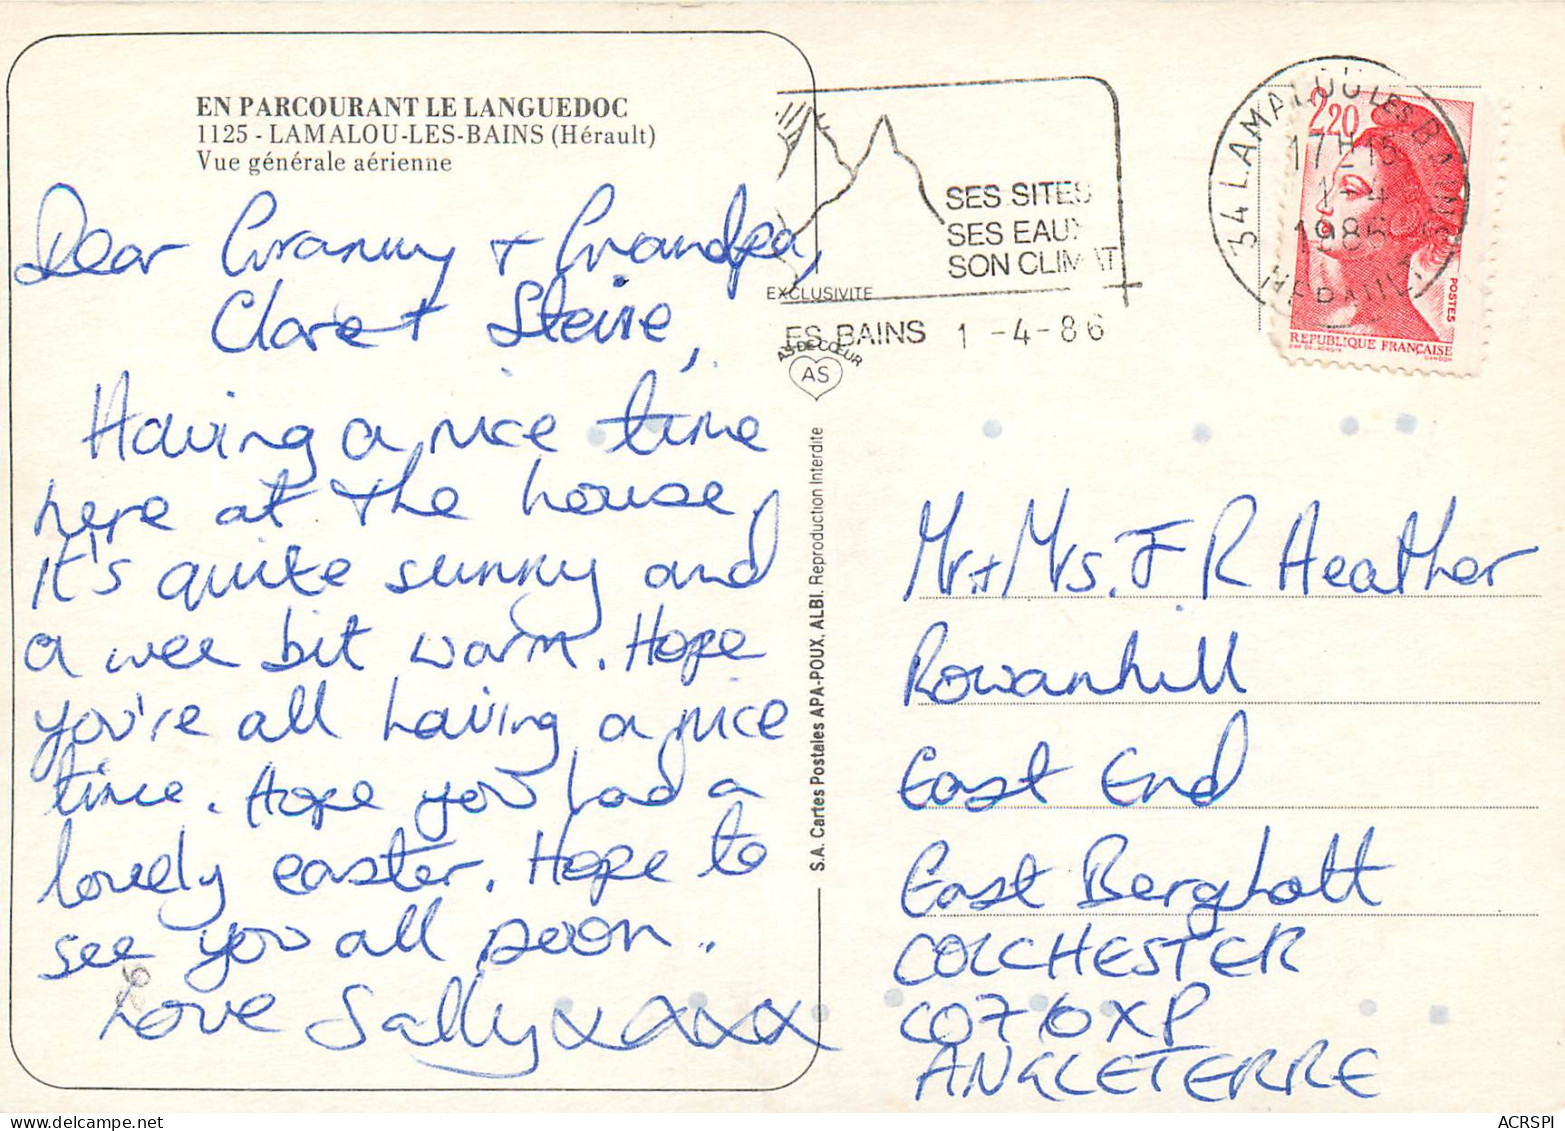 EN PARCOURANT LE LANGUEDOC
1125 - LAMALOU-LES-BAINS (Hérault)
Vue générale aérienne
Dear Granny + Grandpa,
Clare + Steve,
Having a nice time
here at the house.
It's quite sunny and
a wee bit warm. Hope
you're all having a nice
time. Hope you had a
lovely easter. Hope to
see you all soon.
Love Sally xxxx
SES SITES
SES EAUX
SON CLIMAT
EXCLUSIVITE
ES BAINS 1-4-86
AS DE CŒUR
AS
S.A. Cartes Postales APA-POUX, ALBI. Reproduction Interdite
34 LAMALOU LES BAINS
17H15
1-4
1986
HERAULT
2,20
POSTES
REPUBLIQUE FRANÇAISE
GANDON
Mr + Mrs. J R Heather
Rowanhill
East End
East Bergholt
COLCHESTER
CO7 6XP
ANGLETERRE
ACRSPI